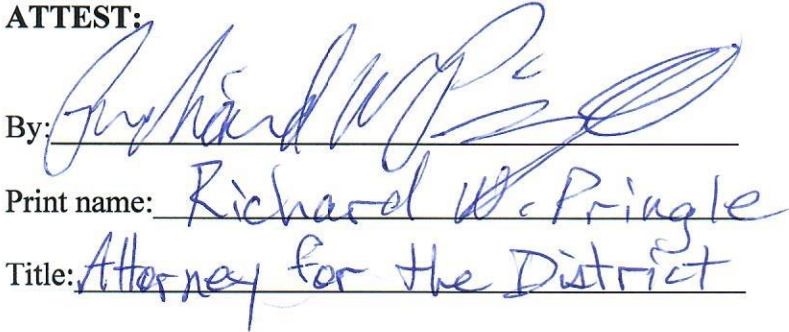 ATTEST:
By: Richard W. Pringle
Print name: Richard W. Pringle
Title: Attorney for the District